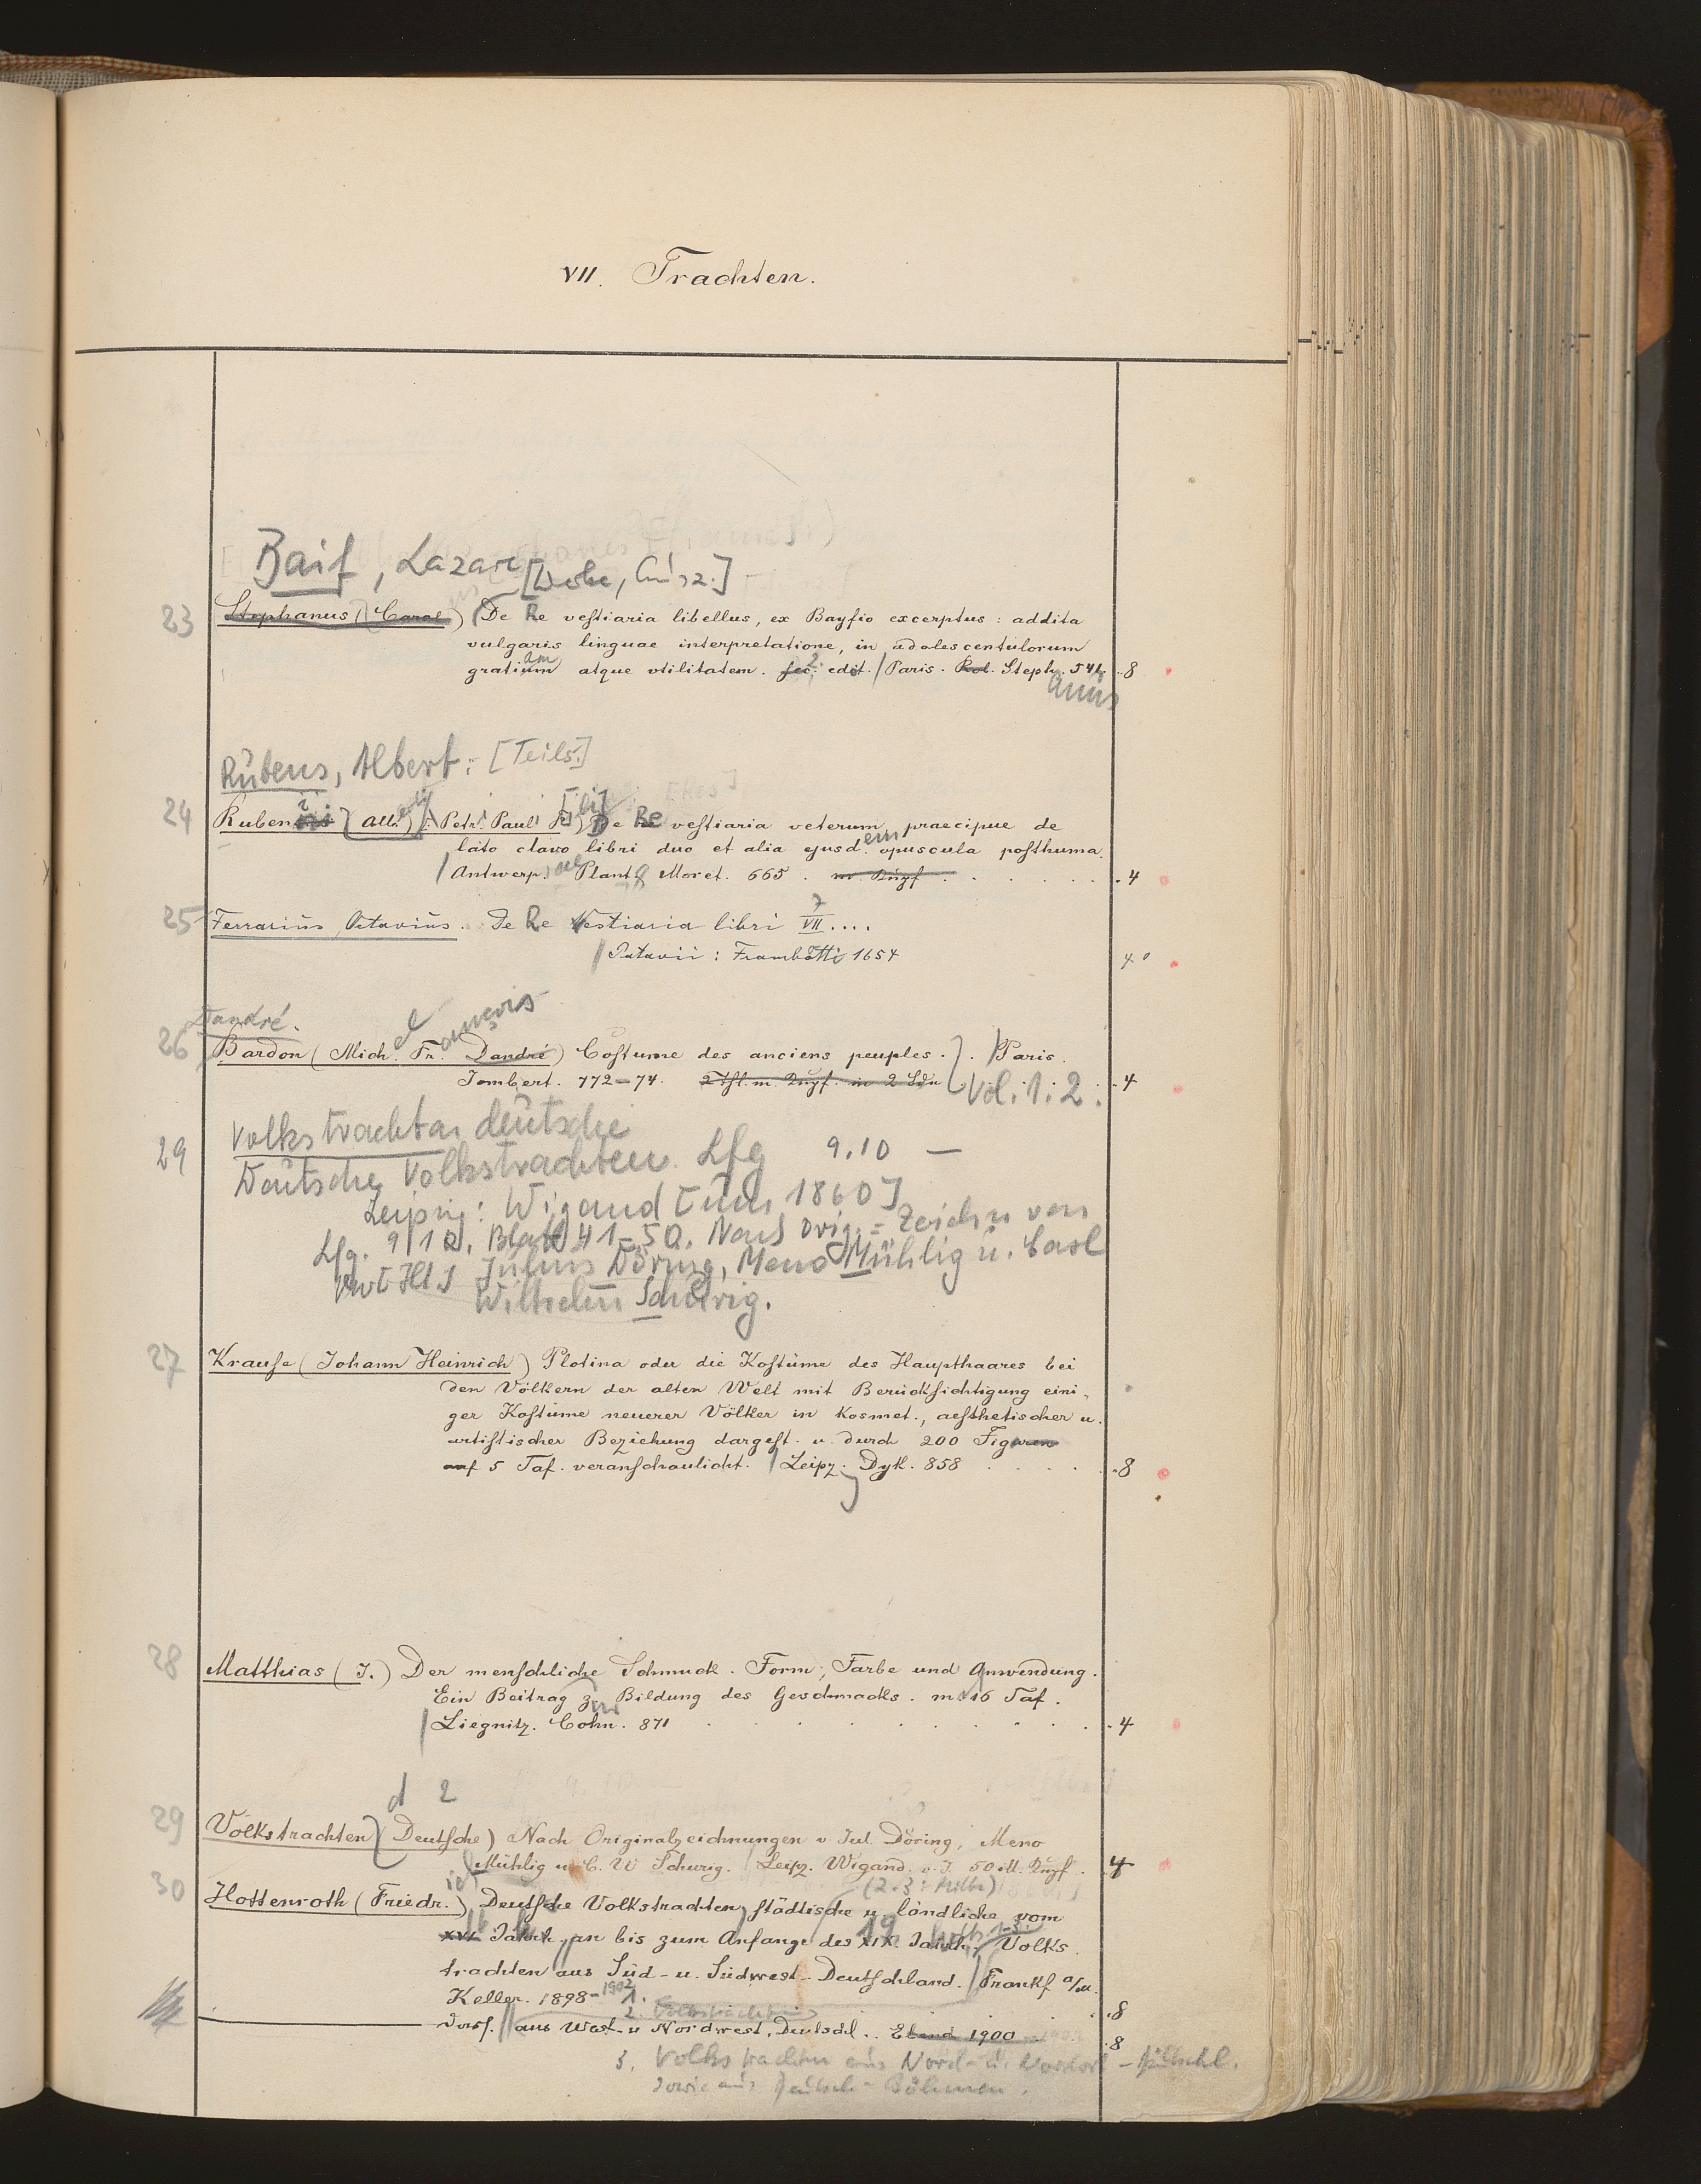 VII. Trachten.
Baif, Lazare
23 Stephanus (Carol.) De Re vestiaria libellus, ex Bayfio excerptus: addita
vulgaris linguae interpretatione, in adolescentulorum
gratiam atque vtilitatem. sec. 2 edit. / Paris. Rol. Steph. 544. 8
anus
Rubens, Albert: [Teils.]
24 Rubeni (Alb.) Petri Pauli F. [ili] De Re vestiaria veterum, praecipue de
lato clavo libri duo et alia ejusdem opuscula posthuma.
/ Antwerp. Plant. Moret. 665. m. Kupf. 4
25 Ferrarius, Octavius. De Re Vestiaria libri VII 7 ....
/ Patavii: Frambotti 1654 4°
Dandré.
26 Bardon (Mich. Fr. ançois Dandré) Costume des anciens peuples. / Paris.
Jombert. 772–74. 2 Thl. m. Kupf. in 2 Bdn Vol. 1. 2. 4
29 Volkstrachten deutsche
Deutsche Volkstrachten. Lfg 9.10 —
Leipzig: Wigand [um 1860]
Lfg. 9/10. Blatt 41–50. Nach Orig.=Zeichn von
Julius Döring, Meno Mühlig u. Carl
Wilhelm Schurig.
27 Krause (Johann Heinrich) Plotina oder die Kostüme des Haupthaares bei
den Völkern der alten Welt mit Berücksichtigung eini-
ger Kostüme neuerer Völker in kosmet., aesthetischer u.
artistischer Beziehung dargest. u. durch 200 Figuren
auf 5 Taf. veranschaulicht. / Leipz. Dyk. 858 8
28 Matthias (J.) Der menschliche Schmuck. Form, Farbe und Anwendung.
Ein Beitrag zur Bildung des Geschmacks. m. 16 Taf.
/ Liegnitz. Cohn. 871 4
d 2
29 Volkstrachten (Deutsche) Nach Originalzeichnungen v. Jul. Döring, Meno
Mühlig u. C. W Schurig. / Leipz. Wigand. o. J. 50 ill. Kupf. 4
30 Hottenroth (Friedr. ich) Deutsche Volkstrachten, städtische u. ländliche vom
XVI. Jahrh. an bis zum Anfange des XIX. 19 Jahrh. Volks
trachten aus Süd- u. Südwest-Deutschland. / Frankf a/M.
Keller. 1898–1902 1. 8
2. Volkstrachten
Ders. aus West- u Nordwest, Deutschl. Ebend 1900 8
3. Volkstrachten aus Nord- u. Nordost-Deutschl.
sowie aus Deutsch-Böhmen.